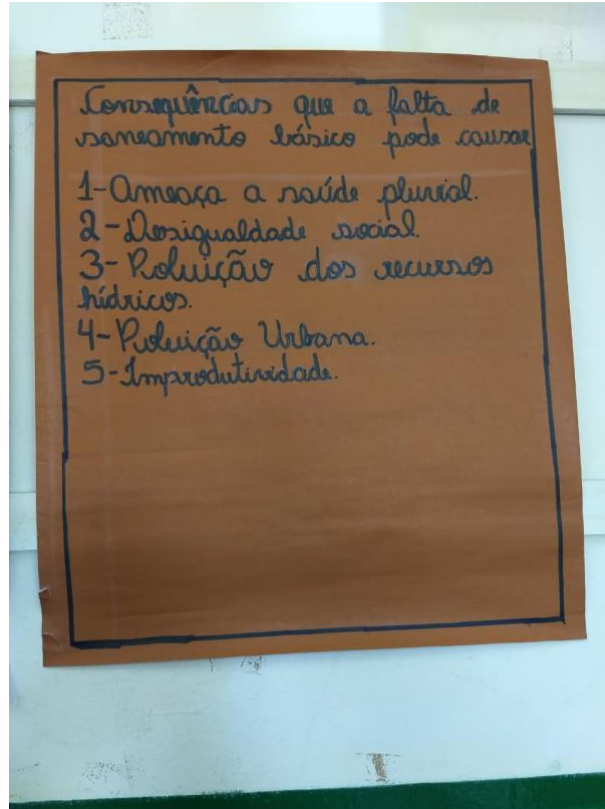 Consequências que a falta de
saneamento básico pode causar
1-Ameaça a saúde pluvial.
2-Desigualdade social.
3-Poluição dos recursos
hídricos.
4-Poluição Urbana.
5-Improdutividade.